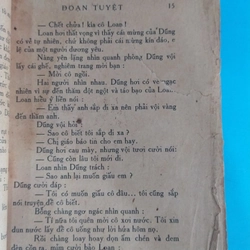 ĐOẠN TUYỆT 15
— Chết chửa! kìa cô Loan!
Loan hơi thất vọng vì thấy cái mừng của Dũng
có vẻ tự nhiên, chứ không phải cái mừng kín đáo, e
lệ của một người đương yêu.
Nàng yên lặng nhìn quanh phòng Dũng vội
lấy cái ghế, nghiêm trang mời bạn:
— Mời cô ngồi.
Hai người nhìn nhau. Dũng hơi có vẻ ngạc
nhiên vì sự đến thăm đột ngột và táo bạo của Loan.
Loan hiểu ý liền nói:
— Em thấy anh sắp đi xa nên phải vội vàng
đến thăm anh.
Dũng vội hỏi:
— Sao cô biết tôi sắp đi xa?
— Chị giáo bảo tin cho em hay.
Dũng hơi cau mày, nhưng vội tươi cười nói:
— Cũng còn lâu tôi mới đi.
Loan nhìn Dũng trách:
— Sao anh lại muốn giấu em?
Dũng cười đáp:
— Tôi có muốn giấu cô đâu... tôi cũng sắp
nói truyện để cô biết.
Bỗng chàng ngơ ngác nhìn quanh:
— Tí nữa tôi quên mời cô xơi nước. Tôi xin
đun nước lấy để cô uống như lời hứa hôm nọ.
Rồi chàng loay hoay dọn ấm chén và đem
đèn cồn ra, mỉm cười bảo Loan: